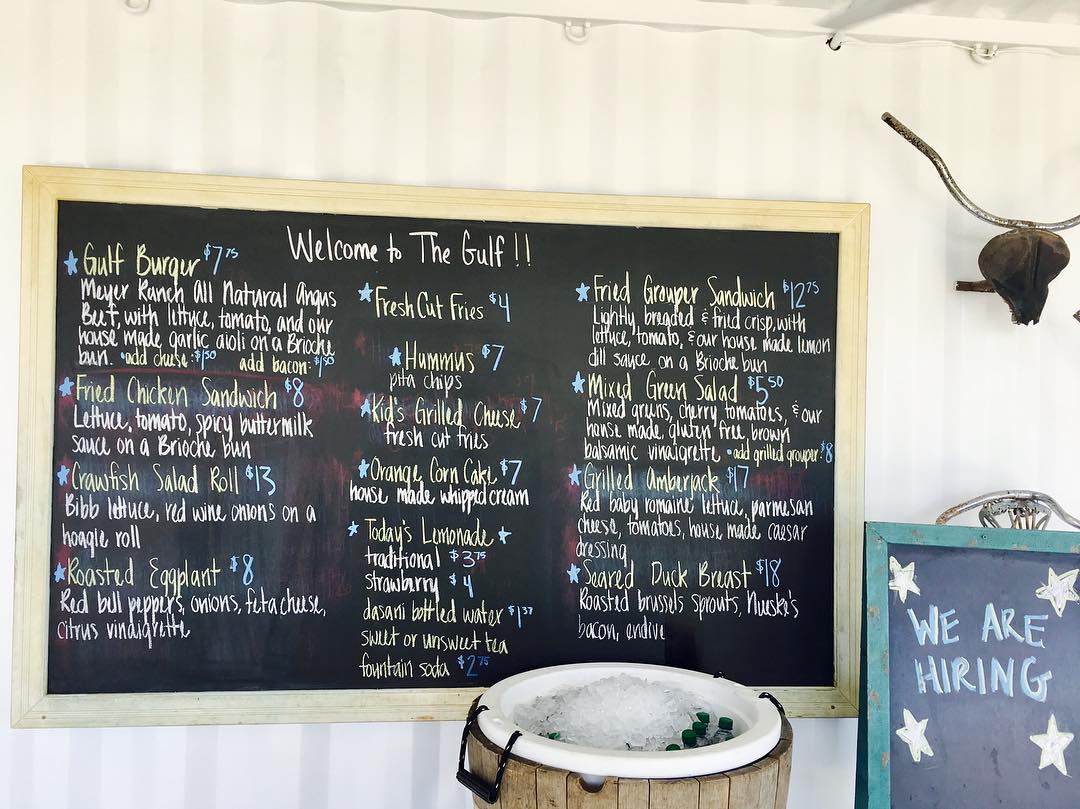 Welcome to The Gulf !!
Gulf Burger $7.75
Meyer Ranch All Natural Angus
Beef, with lettuce, tomato, and our
house made garlic aioli on a Brioche
bun. •add cheese: $1.50 add bacon: $1.50
Fried Chicken Sandwich $8
Lettuce, tomato, spicy buttermilk
sauce on a Brioche bun
Crawfish Salad Roll $13
Bibb lettuce, red wine onions on a
hoagie roll
Roasted Eggplant $8
Red bell peppers, onions, feta cheese,
citrus vinaigrette
Fresh Cut Fries $4
Hummus $7
pita chips
Kid's Grilled Cheese $7
fresh cut fries
Orange Corn Cake $7
house made whipped cream
Today's Lemonade
traditional $3.75
strawberry $4
dasani bottled water $1.37
sweet or unsweet tea
fountain soda $2.75
Fried Grouper Sandwich $12.75
Lightly breaded & fried crisp, with
lettuce, tomato, & our house made lemon
dill sauce on a Brioche bun
Mixed Green Salad $5.50
Mixed greens, cherry tomatoes, & our
house made, gluten free, brown
balsamic vinaigrette •add grilled grouper: $8
Grilled Amberjack $17
Red baby romaine lettuce, parmesan
cheese, tomatoes, house made caesar
dressing
Seared Duck Breast $18
Roasted brussels sprouts, Nueske's
bacon, endive
WE ARE
HIRING